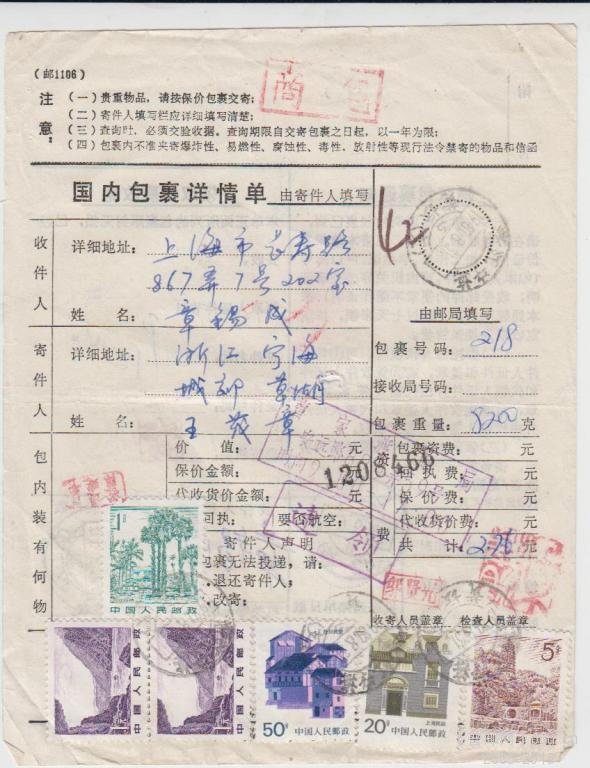 (邮1106)
注意：
(一)贵重物品，请按保价包裹交寄；
(二)寄件人填写栏应详细填写清楚；
(三)查询时，必须交验收据。查询期限自交寄包裹之日起，以一年为限；
(四)包裹内不准夹寄爆炸性、易燃性、腐蚀性、毒性、放射性等现行法令禁寄的物品和信函
国内包裹详情单 由寄件人填写
收件人
详细地址：上海市长寿路
867弄7号202室
姓 名：章锡成
寄件人
详细地址：浙江宁海
城郊
姓 名：王茂章
由邮局填写
包裹号码：218
接收局号码：
包裹重量：8200克
包内装有何物
价 值：元
保价金额：元
代收货价金额：元
回执： 要否航空：
寄件人声明
包裹无法投递，请：
退还寄件人；
改寄：
资费
包裹资费：元
回执费：元
保价费：元
代收货价费：元
共 计：2.96元
1208466
收寄人员盖章 检查人员盖章
中国人民邮政
中国人民邮政
中国人民邮政
50分 中国人民邮政
20分 中国人民邮政
上海民居
5分
中国人民邮政